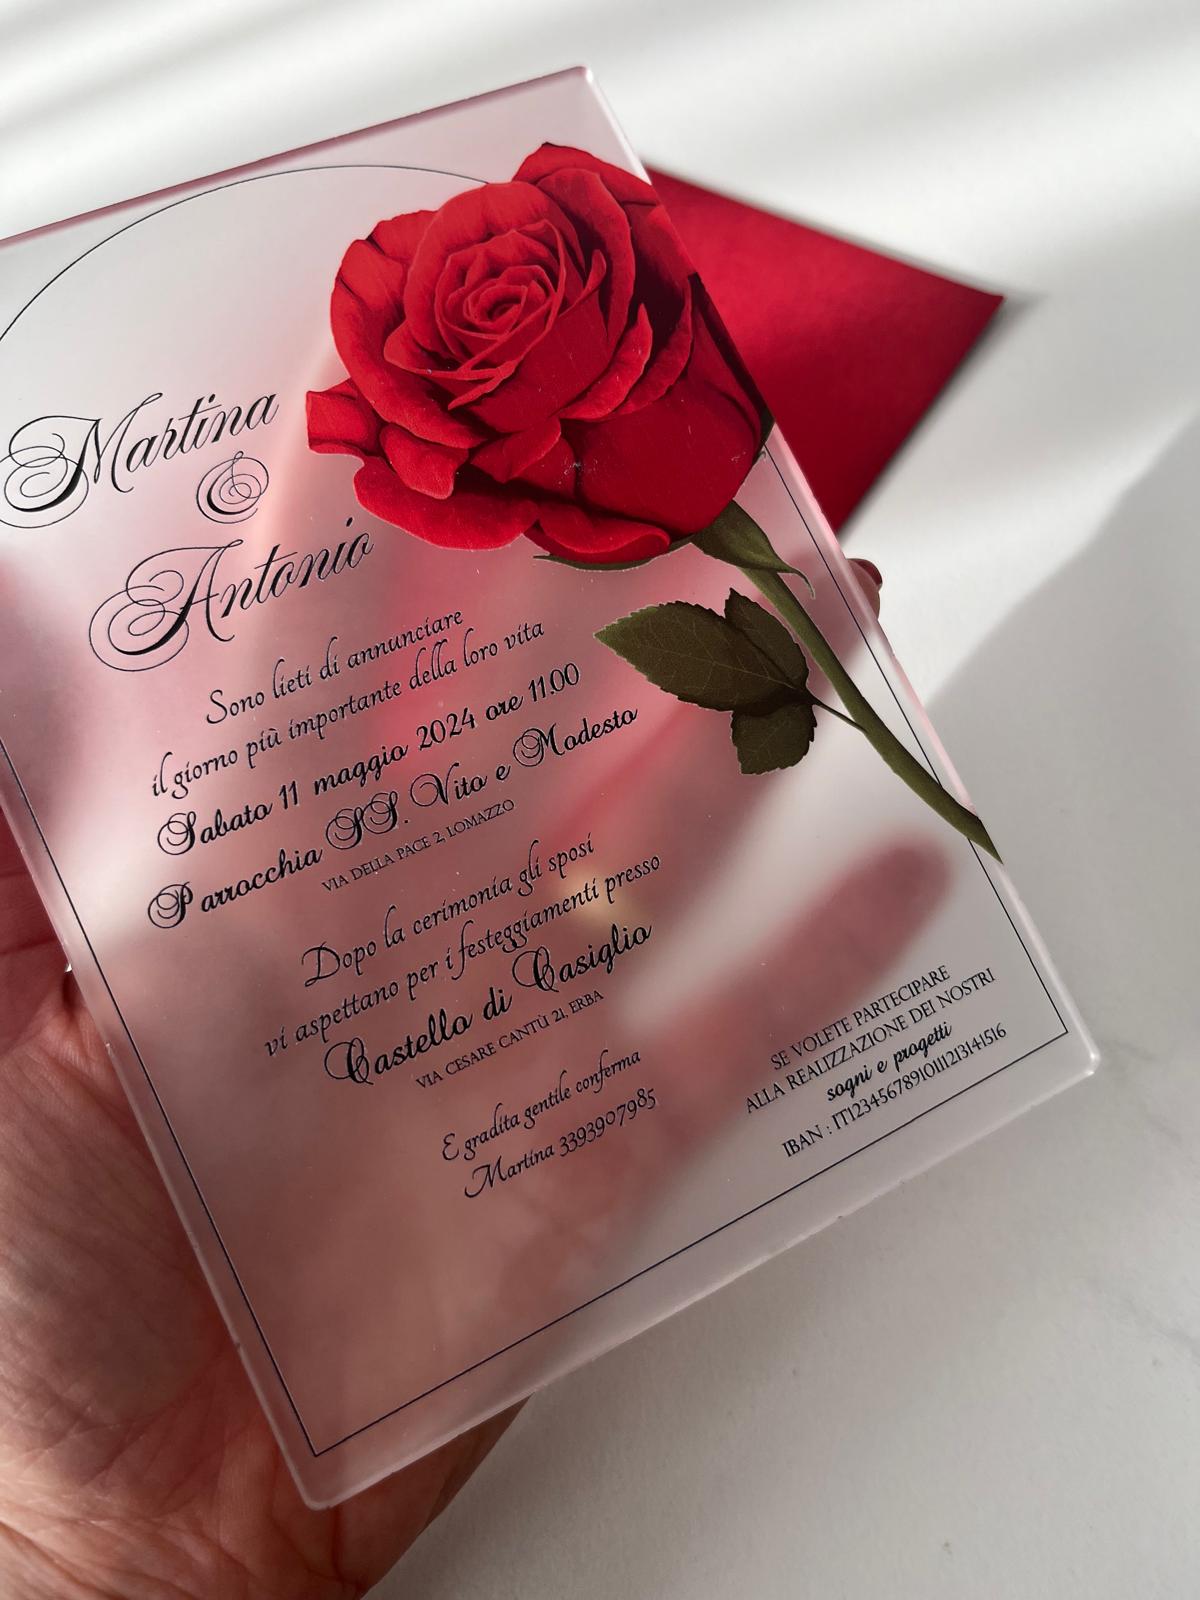 Martina
&
Antonio
Sono lieti di annunciare
il giorno più importante della loro vita
Sabato 11 maggio 2024 ore 11.00
Parrocchia SS. Vito e Modesto
VIA DELLA PACE 2, LOMAZZO
Dopo la cerimonia gli sposi
vi aspettano per i festeggiamenti presso
Castello di Casiglio
VIA CESARE CANTÙ 21, ERBA
E gradita gentile conferma
Martina 3393907985
SE VOLETE PARTECIPARE
ALLA REALIZZAZIONE DEI NOSTRI
sogni e progetti
IBAN : IT12345678910111213141516